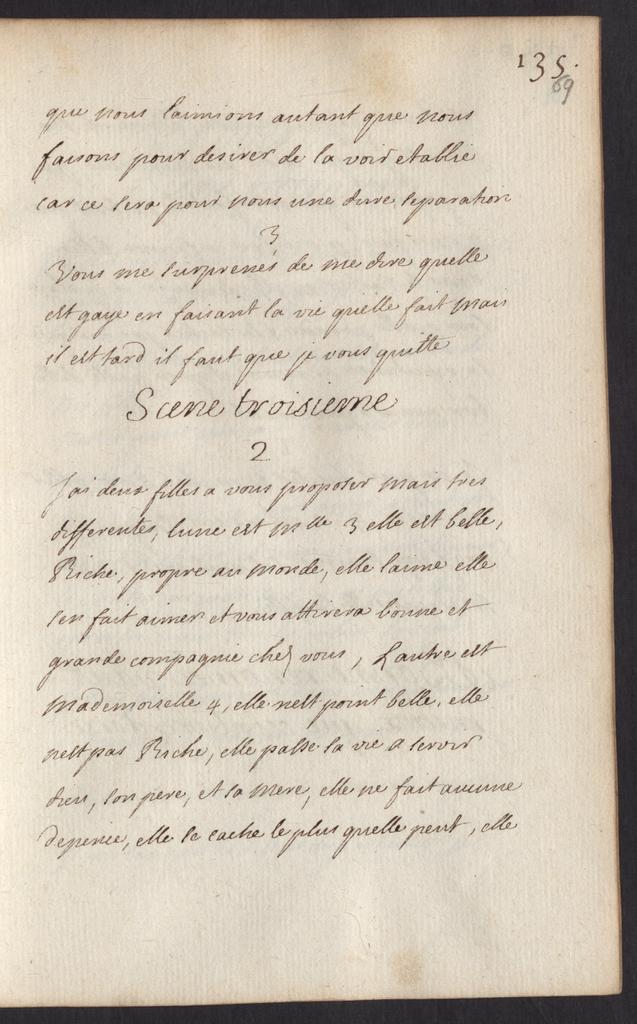 135.
69
que nous laimions autant que nous
faisons pour desirer de la voir etablie
car ce sera pour nous une dure separation
3
Vous me surprenés de me dire quelle
est gaye en faisant la vie quelle fait mais
il est tard il faut que je vous quitte
Scene troisieme
2
J'ai deux filles a vous proposer mais tres
differentes, lune est Mlle 3 elle est belle,
Riche, propre au monde, elle laime elle
sen fait aimer et vous attirera bonne et
grande compagnie chez vous, Lautre est
Mademoiselle 4, elle nest point belle, elle
nest pas Riche, elle passe sa vie a servir
dieu, son pere, et sa mere, elle ne fait aucune
depense, elle se cache le plus quelle peut, elle